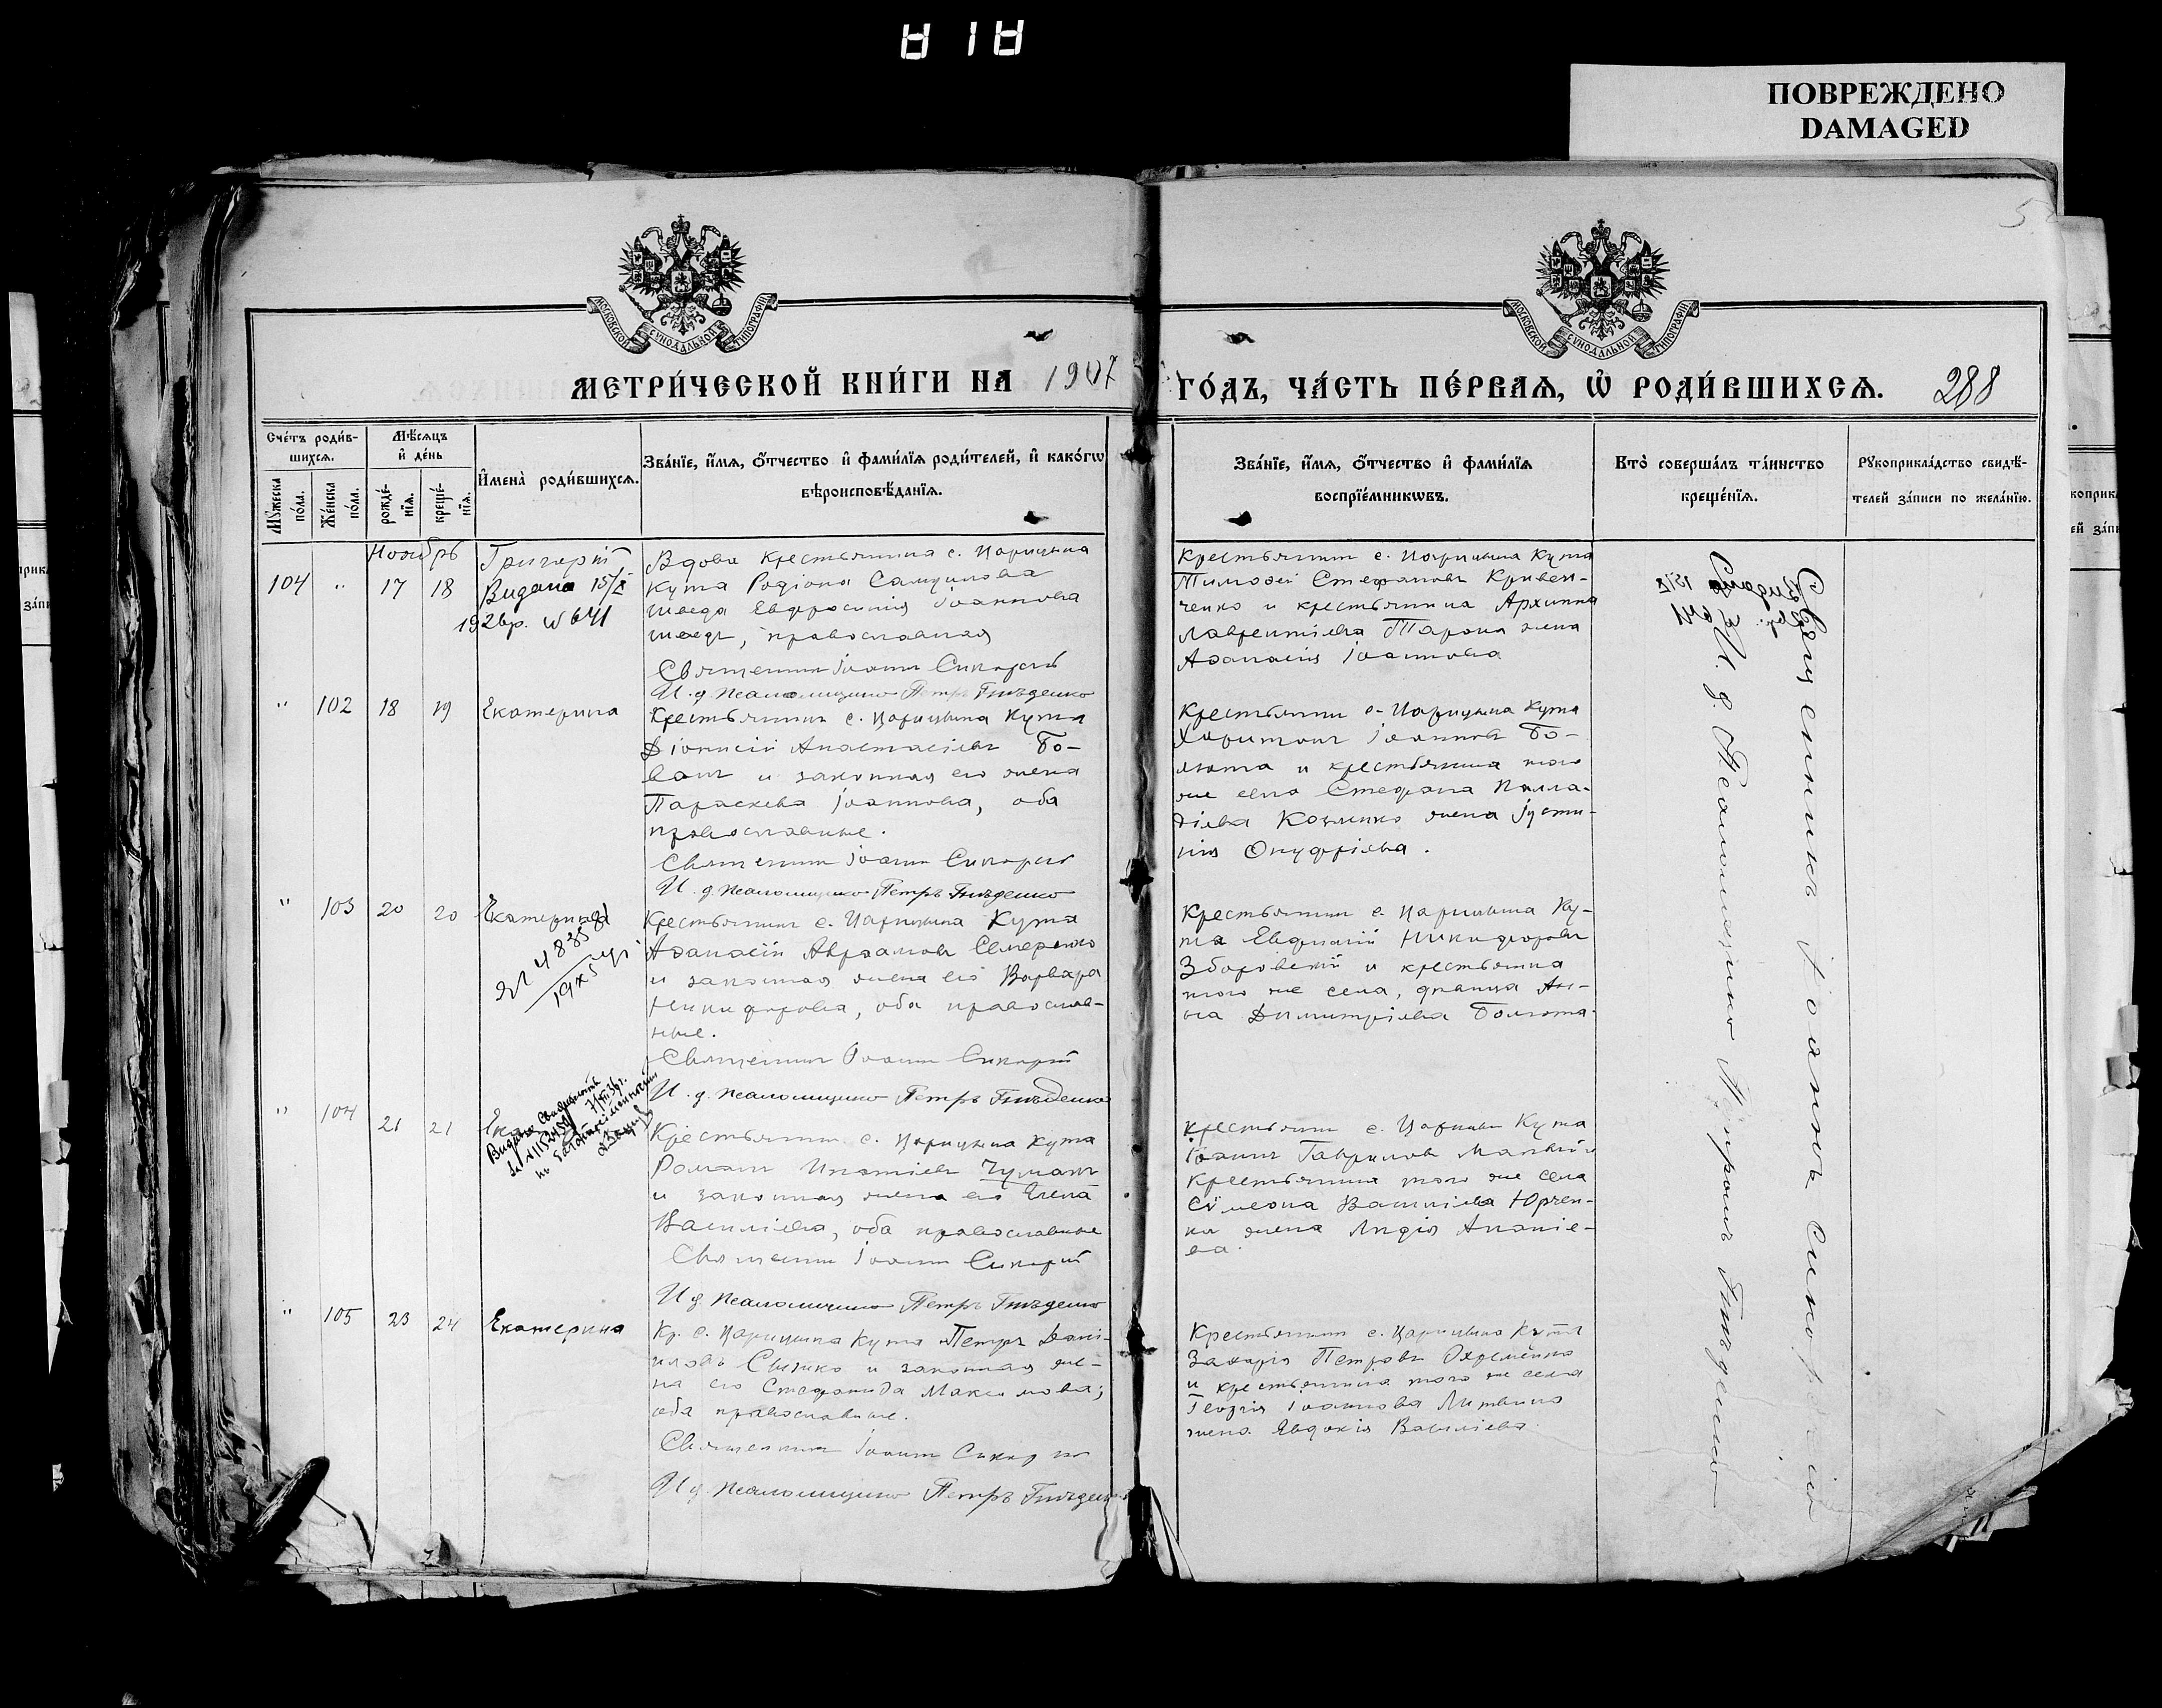 818
ПОВРЕЖДЕНО
DAMAGED
МОСКОВСКОЙ СѴНОДАЛЬНОЙ ТИПОГРАФІИ
МОСКОВСКОЙ СѴНОДАЛЬНОЙ ТИПОГРАФІИ
МЕТРИ́ЧЕСКОЙ КНИ́ГИ НА 1907
ГО́ДЪ, ЧА́СТЬ ПЕ́РВАѦ, Ѡ҆ РОДИ́ВШИХСѦ. 288
Сче́тъ роди́в-
шихсѧ.
Мꙋ́жеска по́ла.
Же́нска по́ла.
Мѣ́сѧцъ
и҆ де́нь
рожде́-
нїѧ.
креще́-
нїѧ.
И҆мена̀ роди́вшихсѧ.
Зва́нїе, и҆́мѧ, ѻ҆́тчество и҆ фами́лїѧ роди́телей, и҆ како́гѡ
вѣроисповѣ́данїѧ.
Зва́нїе, и҆́мѧ, ѻ҆́тчество и҆ фами́лїѧ
воспрїе́мникѡвъ.
Кто̀ соверша́лъ та́инство
креще́нїѧ.
Рꙋкоприкла́дство свидѣ́-
телей за́писи по жела́нїю.
Ноябрь
104 " 17 18 Григорій
Видана 15/X
192 6р. № 641
Вдова крестьянина с. Царицына
Кута Родіона Самуилова
Шведа Евфросинія Іоаннова
Шведъ, православная
Священникъ Іоаннъ Сикорскій
И. д. псаломщика Петръ Гнѣденко
Крестьянин с. Царицына Кута
Тимоѳей Стефановъ Кривен-
ченко и крестьянина Архиппа
Лаврентіева Тарана жена
Аѳанасія Іоаннова
" 102 18 19 Екатерина
Крестьянинъ с. Царицына Кута
Діонисій Анастасіевъ Бо-
ванъ и законная его жена
Параскева Іоаннова, оба
православные.
Священникъ Іоаннъ Сикорскій
И. д. псаломщика Петръ Гнѣденко
Крестьянин с. Царицына Кута
Харитонъ Іоанновъ Бо-
люта и крестьянина того
же села Стефана Палла-
діева Козленко жена Іусти-
нія Онуфріева.
" 103 20 20 Екатерина
Крестьянинъ с. Царицына Кута
Аѳанасій Авраамовъ
и законная жена его Варвара
Никифорова, оба православ-
ные.
Священникъ Іоаннъ Сикорскій
И. д. псаломщика Петръ Гнѣденко
Крестьянин с. Царицына Ку-
та Евфимій Никифоровъ
Зборовскій и крестьянка
того же села, дѣвица Ан-
на Димитріева Болюта.
" 104 21 21
Крестьянин с. Царицына Кута
Романъ Игнатіевъ Чумакъ
и законная жена его Елена
Василіева, оба православные
Священникъ Іоаннъ Сикорскій
И. д. псаломщика Петръ Гнѣденко
Крестьянин с. Царицына Кута
Іоаннъ Гавриловъ
крестьянина того же села
Сѷмеона Василіева Юрчен-
ка жена Лидія Ананіе-
ва.
" 105 23 24 Екатерина
Кр. с. Царицына Кута Петръ Дані-
иловъ и законная же-
на его Стефанида Максимова,
оба православные.
Священникъ Іоаннъ Сикорскій
И. д. псаломщика Петръ Гнѣденко
Крестьянин с. Царицына Кута
Захарія Петровъ Охременко
и крестьянина того же села
Георгія Іоаннова Литвина
жена Евдокія Василіева.
Священникъ Іоаннъ Сикорскій
И. д. Псаломщика Петръ Гнѣденко